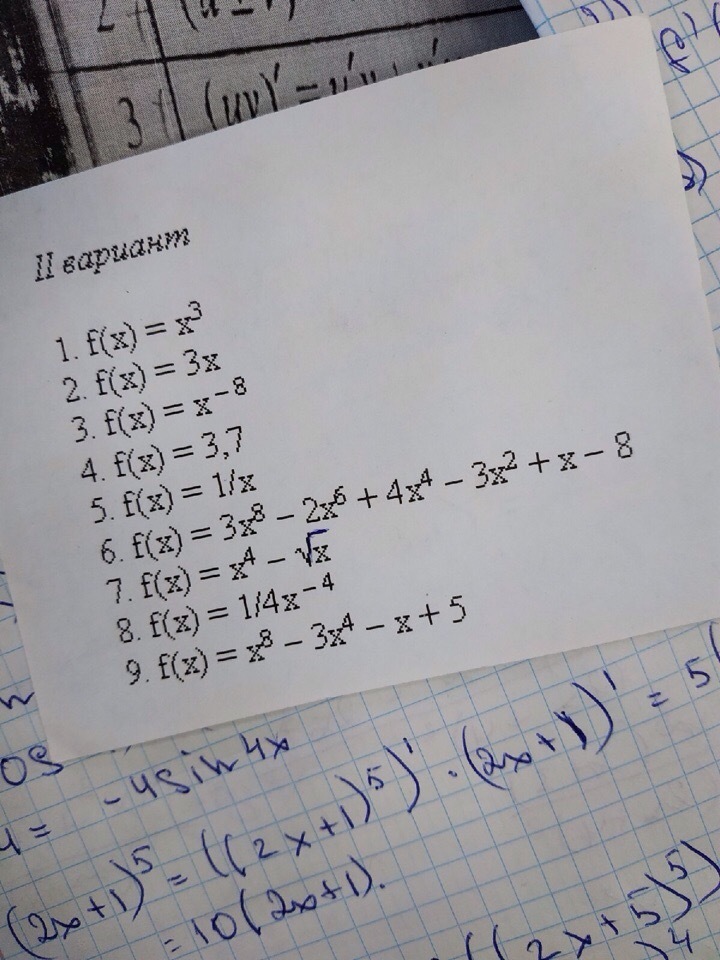 3 (uv)' = u'v +
II вариант
1. f(x) = x³
2. f(x) = 3x
3. f(x) = x⁻⁸
4. f(x) = 3,7
5. f(x) = 1/x
6. f(x) = 3x⁸ − 2x⁶ + 4x⁴ − 3x² + x − 8
7. f(x) = x⁴ − √x
8. f(x) = 1/4x⁻⁴
9. f(x) = x⁸ − 3x⁴ − x + 5
os
= -4sin4x
(2x+1)⁵ = ((2x+1)⁵)' · (2x+1)' = 5(
= 10(2x+1).
((2x+5)⁵)